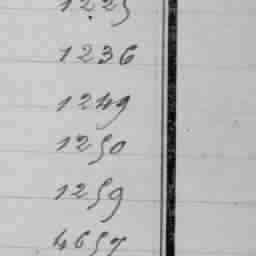 1225
1236
1249
1250
1259
4657